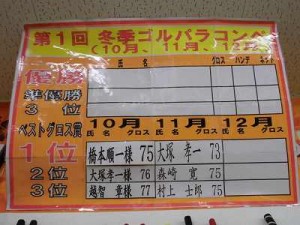 第1回 冬季ゴルバラコンペ
(10月、11月、12月
氏 名 グロス ハンデ ネット
優勝
準優勝
3 位
ベストグロス賞 10月 11月 12月
氏 名 グロス 氏 名 グロス 氏 名 グロス
1位 橋本順一様 75 大塚 孝一 73
2位 大塚孝一様 76 森崎 寛 75
3位 越智 章様 77 村上 士郎 75